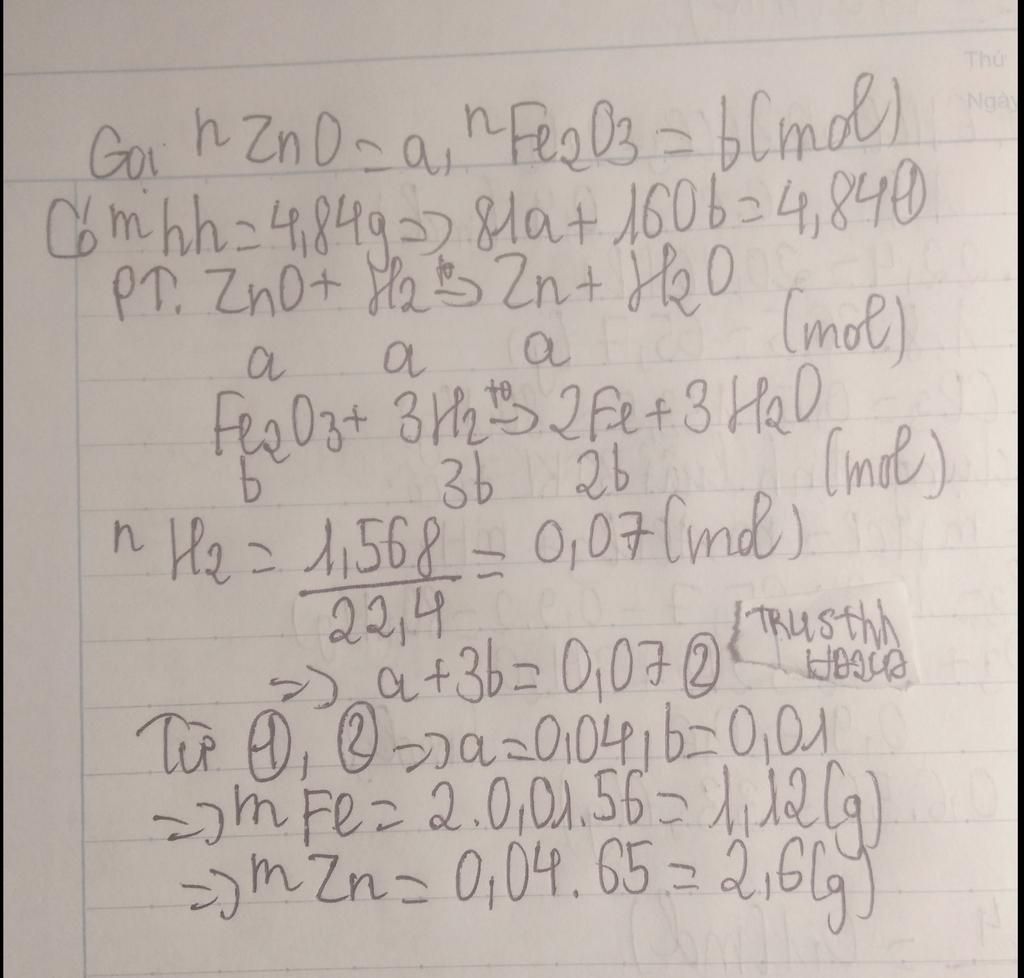 Thứ
Ngày
Gọi nZnO = a, nFe2O3 = b(mol)
Có mhh = 4,84g => 81a + 160b = 4,84 ①
PT: ZnO + H2 t°=> Zn + H2O
a a a (mol)
Fe2O3 + 3H2 t°=> 2Fe + 3H2O
b 3b 2b (mol)
nH2 = 1,568 = 0,07 (mol)
22,4
=> a + 3b = 0,07 ②
TRUSthh
Từ ①, ② => a = 0,04, b = 0,01
=> mFe = 2.0,01.56 = 1,12(g)
=> mZn = 0,04.65 = 2,6(g)